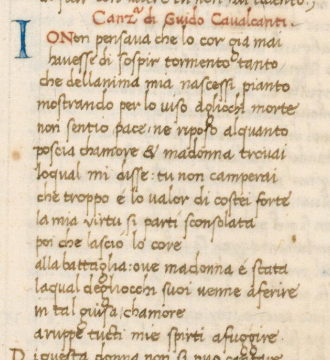 Canz.ª di Guido Caualcanti.
IONon pensava che lo cor gia mai
havesse di sospir tormento tanto
che dellanima mia nascessi pianto
mostrando per lo uiso agliochi morte
non sentio pace, ne riposo alquanto
poscia chamore & madonna trouai
loqual mi disse: tu non camperai
che troppo é lo ualor di costei forte
la mia uirtu si parti sconsolata
poi che lascio lo core
alla battaglia: oue madonna é stata
laqual degliocchi suoi uenne aferire
in tal guisa, chamore
a ruppe tucti mie spirti a fuggire
questa donna non si puo